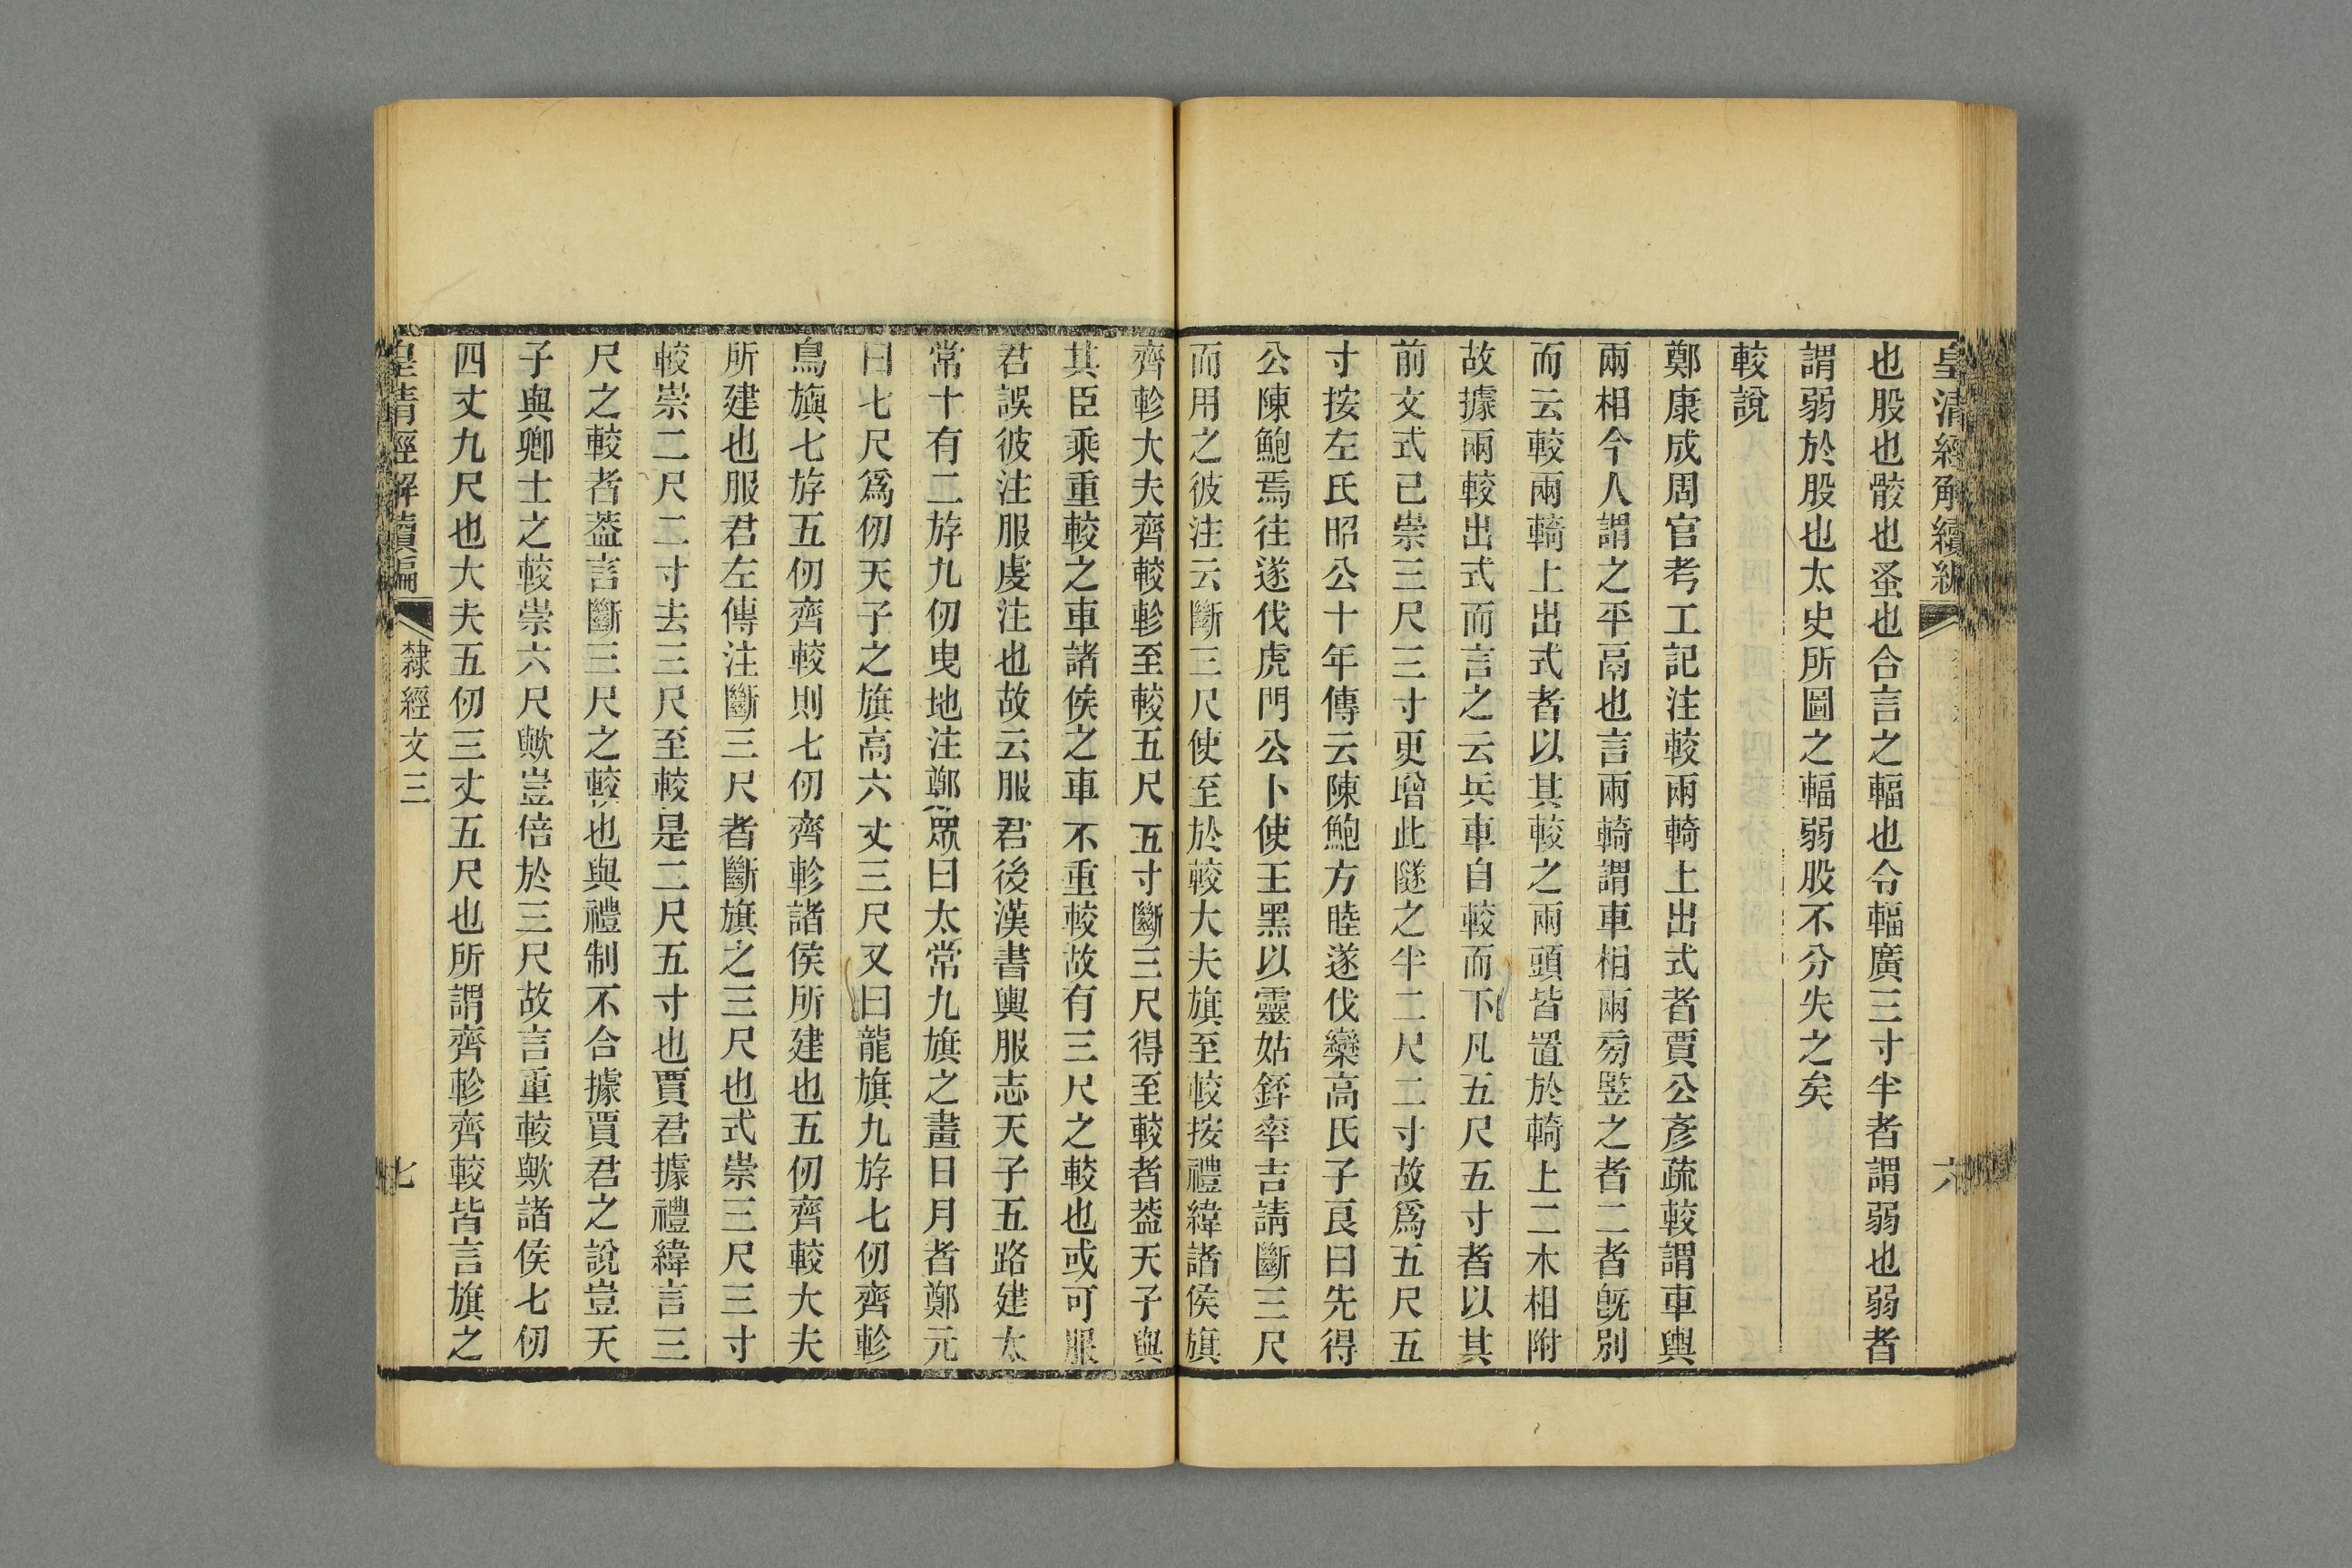 皇清經解續編
六
也股也骰也蚤也合言之輻也令輻廣三寸半者謂弱也弱者
謂弱於股也太史所圖之輻弱股不分失之矣
較說
鄭康成周官考工記注較兩輢上出式者賈公彥疏較謂車輿
兩相今人謂之平鬲也言兩輢謂車相兩㫄豎之者二者旣別
而云較兩輢上出式者以其較之兩頭皆置於輢上二木相附
故據兩較出式而言之云兵車自較而下凡五尺五寸者以其
前文式已崇三尺三寸更增此隧之半二尺二寸故爲五尺五
寸按左氏昭公十年傳云陳鮑方睦遂伐欒高氏子良曰先得
公陳鮑焉往遂伐虎門公卜使王黑以靈姑銔率吉請斷三尺
而用之彼注云斷三尺使至於較大夫旗至較按禮緯諸侯旗
齊軫大夫齊較軫至較五尺五寸斷三尺得至較者葢天子與
其臣乘重較之車諸侯之車不重較故有三尺之較也或可服
君誤彼注服虔注也故云服君後漢書輿服志天子五路建太
常十有二斿九仞曳地注鄭眾曰太常九旗之畫日月者鄭元
曰七尺爲仞天子之旗高六丈三尺又曰龍旗九斿七仞齊軫
鳥旟七斿五仞齊較則七仞齊軫諸侯所建也五仞齊較大夫
所建也服君左傳注斷三尺者斷旗之三尺也式崇三尺三寸
較崇二尺二寸去三尺至較是二尺五寸也賈君據禮緯言三
尺之較者葢言斷三尺之較也與禮制不合據賈君之說豈天
子與卿士之較崇六尺歟豈倍於三尺故言重較歟諸侯七仞
四丈九尺也大夫五仞三丈五尺也所謂齊軫齊較皆言旗之
皇清經解續編
隸經文三
七